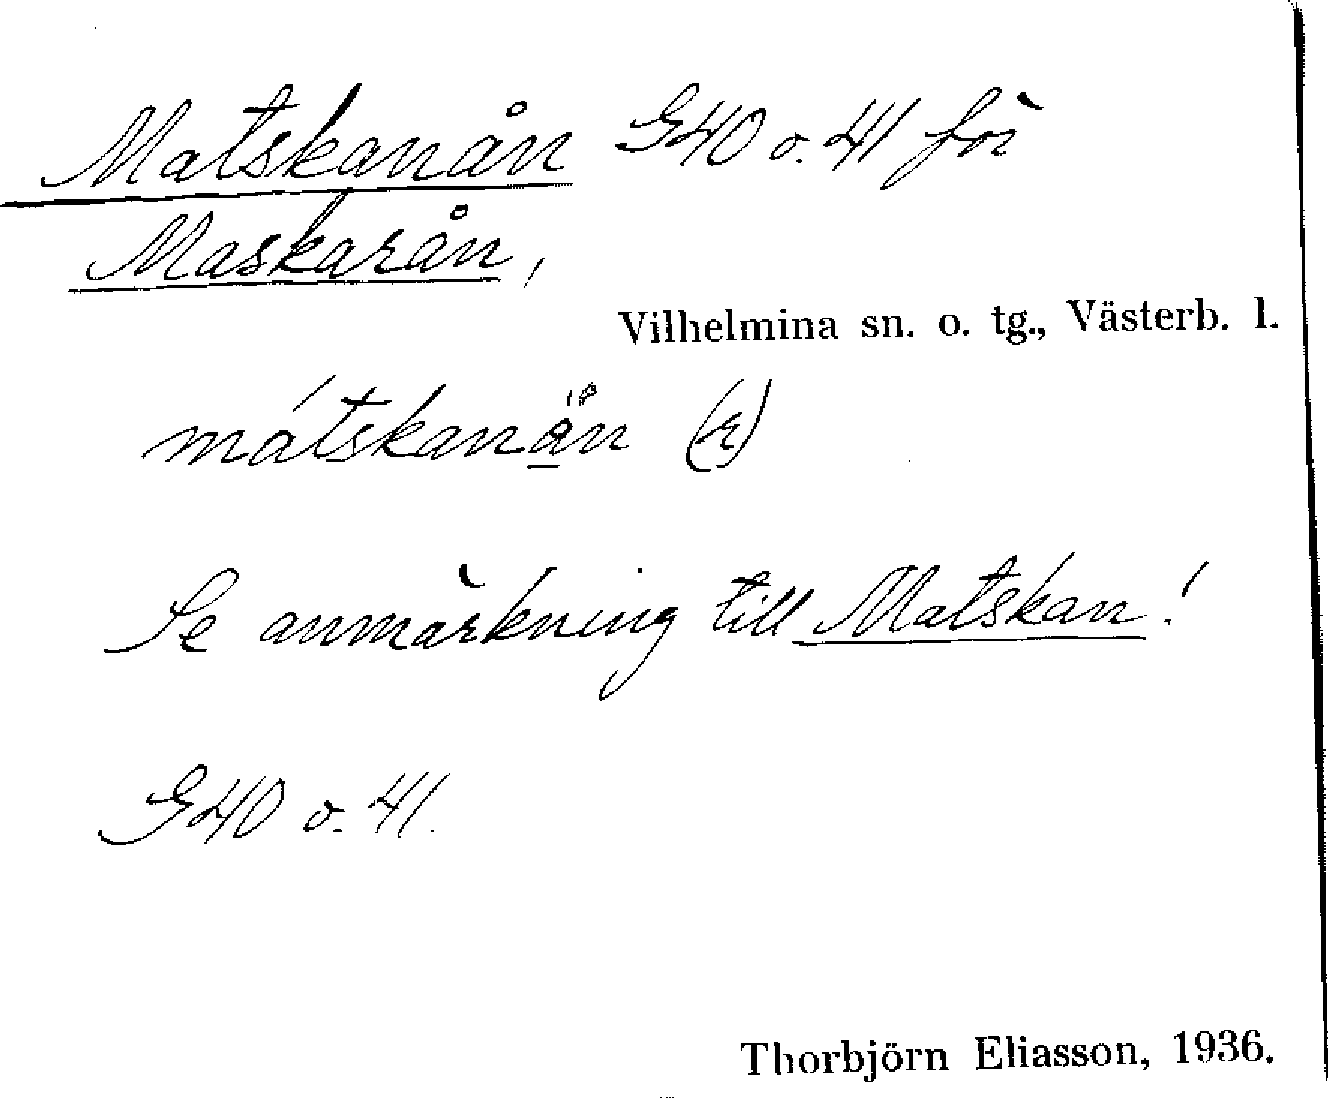 Matskanån G40 o. 41 för
Maskarån,
Vilhelmina sn. o. tg., Västerb. l.
mátskanån (r)
Se anmärkning till Matskan!
G40 o. 41.
Thorbjörn Eliasson, 1936.